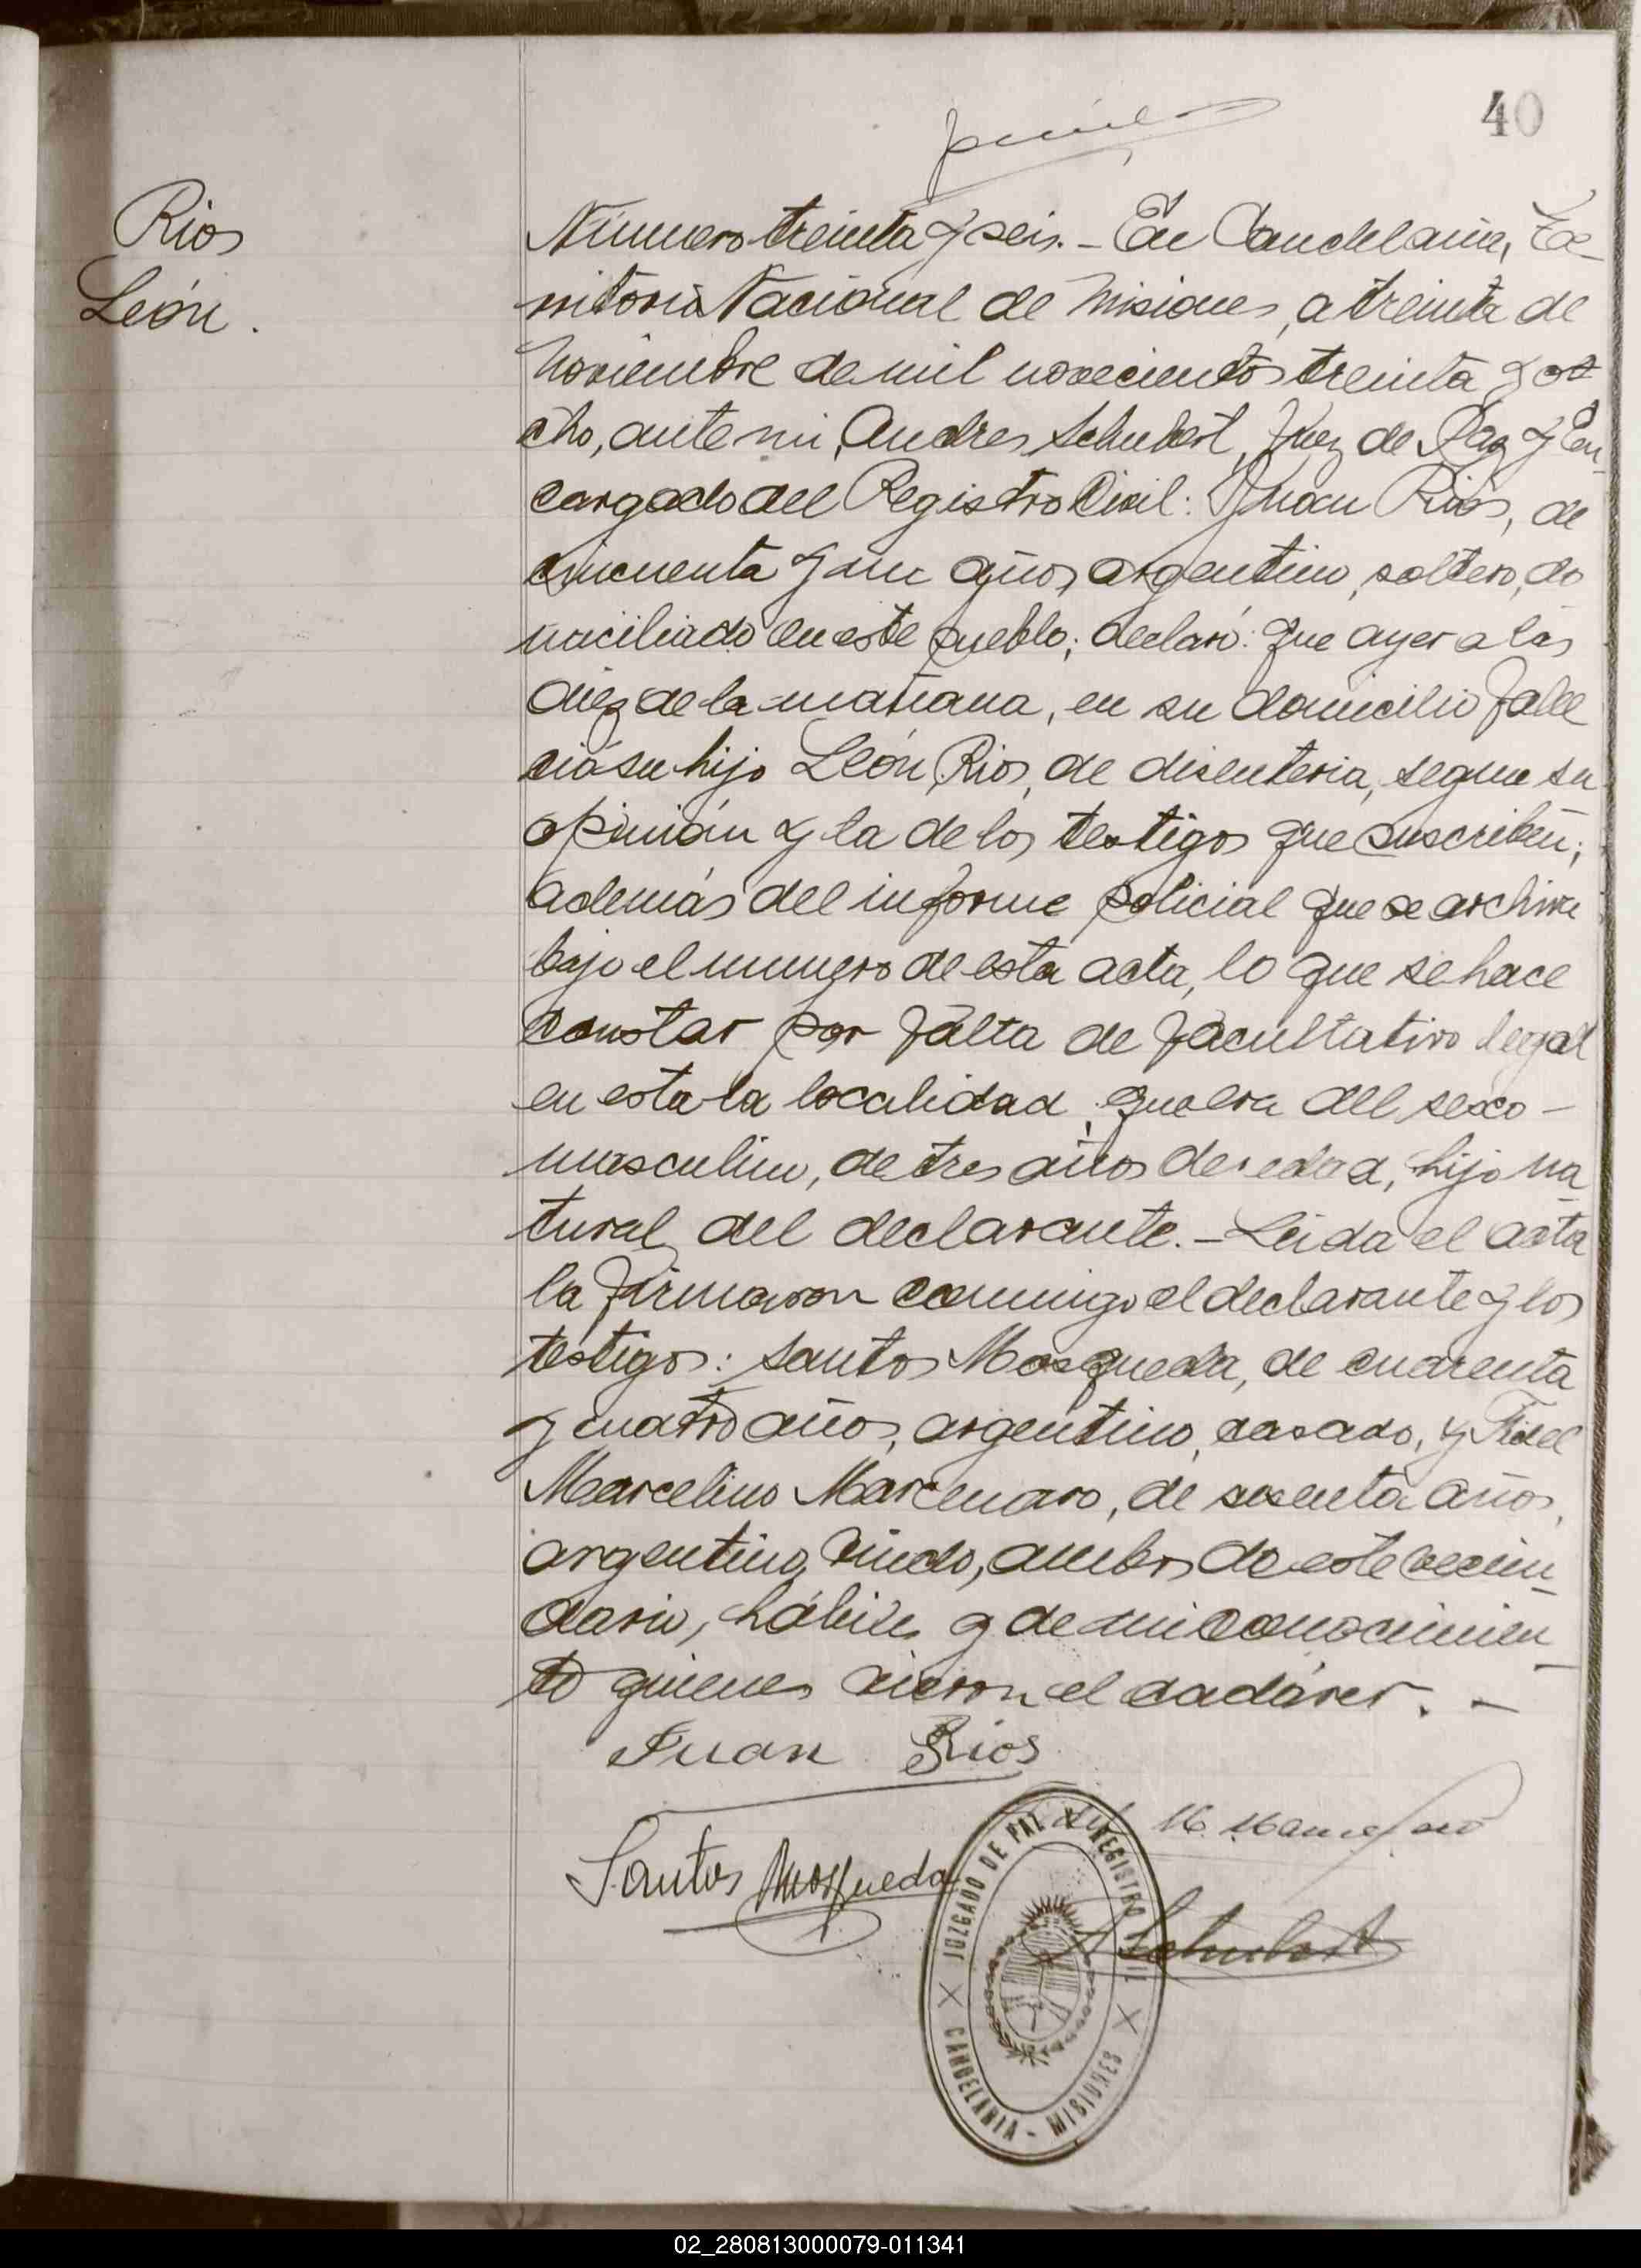 40
Rios
León.
Número treinta y seis. - En Candelaria, Te-
rritorio Nacional de Misiones, a treinta de
Noviembre de mil novecientos treinta y o
cho, ante mi, Andres Schubert, Juez de Paz y En-
cargado del Registro Civil: Juan Rios, de
cincuenta y un años, argentino, soltero, do
miciliado en este pueblo; declaró: que ayer a las
diez de la mañana, en su domicilio falle
ció su hijo León Rios, de disenteria, segun su
opinión y la de los testigos que suscriben;
además del informe policial que se archiva
bajo el numero de esta acta, lo que se hace
constar por falta de facultativo legal
en esta la localidad, que era del sexo -
masculino, de tres años de edad, hijo na
tural del declarante. - Leida el acta
la firmaron conmigo el declarante y los
testigos: Santos Mosqueda, de cuarenta
y cuatro años, argentino, casado, y Fidel
Marcelino Marcenaro, de sesenta años,
argentino, viudo, ambos de este vecin-
dario, hábiles y de mi conocimien-
to quienes vieron el cadáver. -
Juan Rios
M. Marcenaro
Santos Mosqueda
A Schubert
JUZGADO DE PAZ Y REGISTRO CIVIL
CANDELARIA - MISIONES
02_280813000079-011341